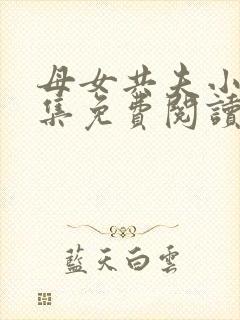 母女共夫小
集免費閱讀
藍天白雲